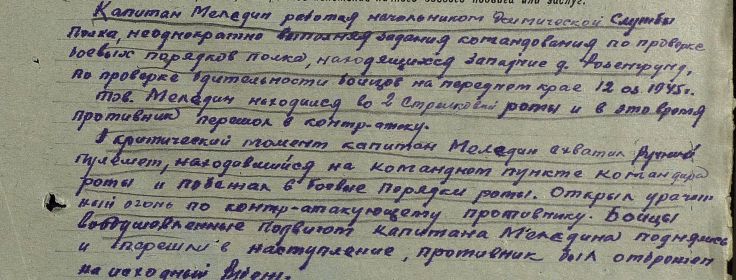 Капитан Меледин работая начальником Химической Службы
Полка, неоднократно выполнял задания командования по проверке
боевых порядков полка, находящихся западнее д. Розенгрунд,
по проверке бдительности бойцов на переднем крае 12.02.1945г.
Тов. Меледин находился во 2 Стрелковой роты и в это время
противник перешол в контр-атаку.
В критический момент капитан Меледин схватил Ручной
Пулемет, находившийся на командном пункте командира
роты и побежал в боевые порядки роты. Открыл ураган-
ный огонь по контр-атакующему противнику. Бойцы
воодушовленные подвигом капитана Меледина поднялись
и перешли в наступление, противник был отброшен
на исходный Рубеж.